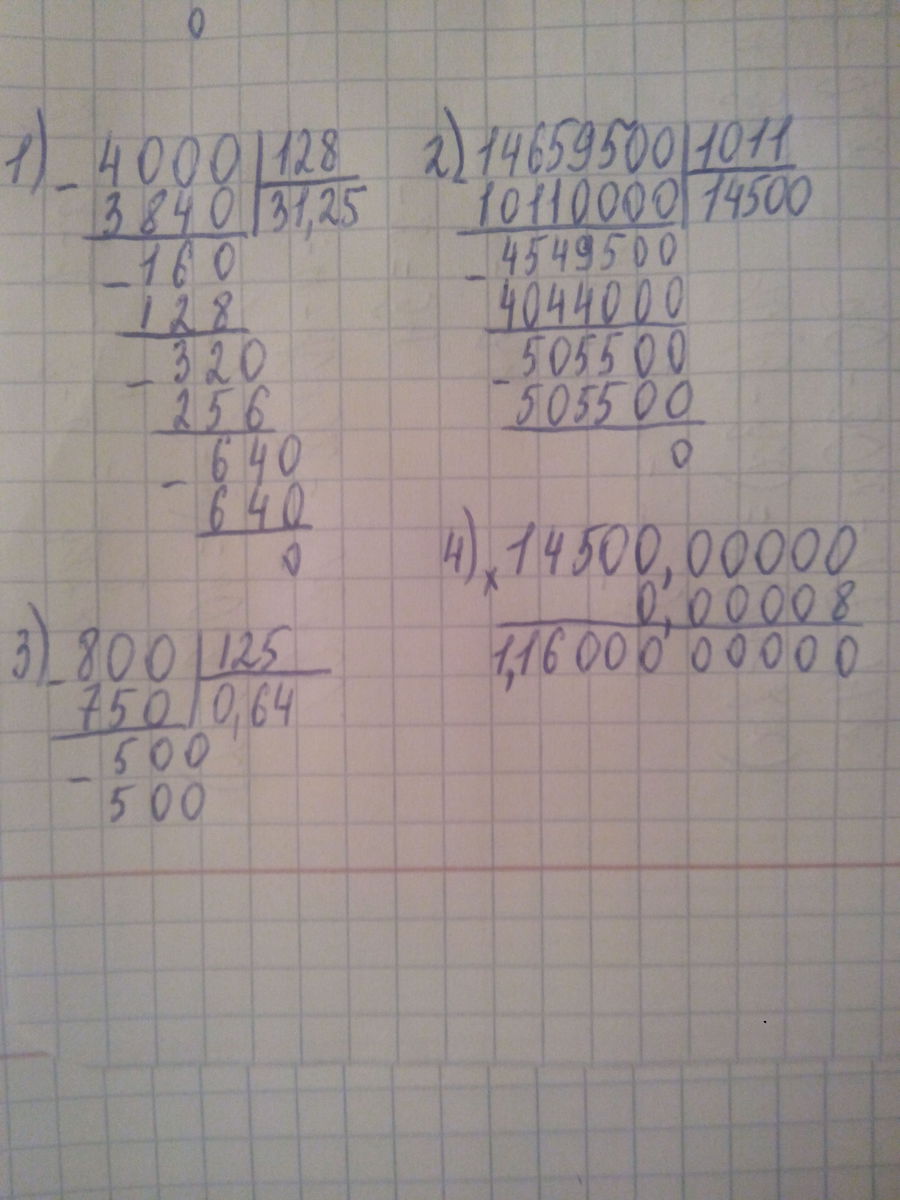 0
1) - 4000 | 128
3840 | 31,25
- 160
128
- 320
256
- 640
640
0
2) - 14659500 | 1011
10110000 | 14500
- 4549500
4044000
- 505500
505500
0
3) - 800 | 125
750 | 0,64
- 500
500
4) x 14500,00000
0,00008
1,16000 00000